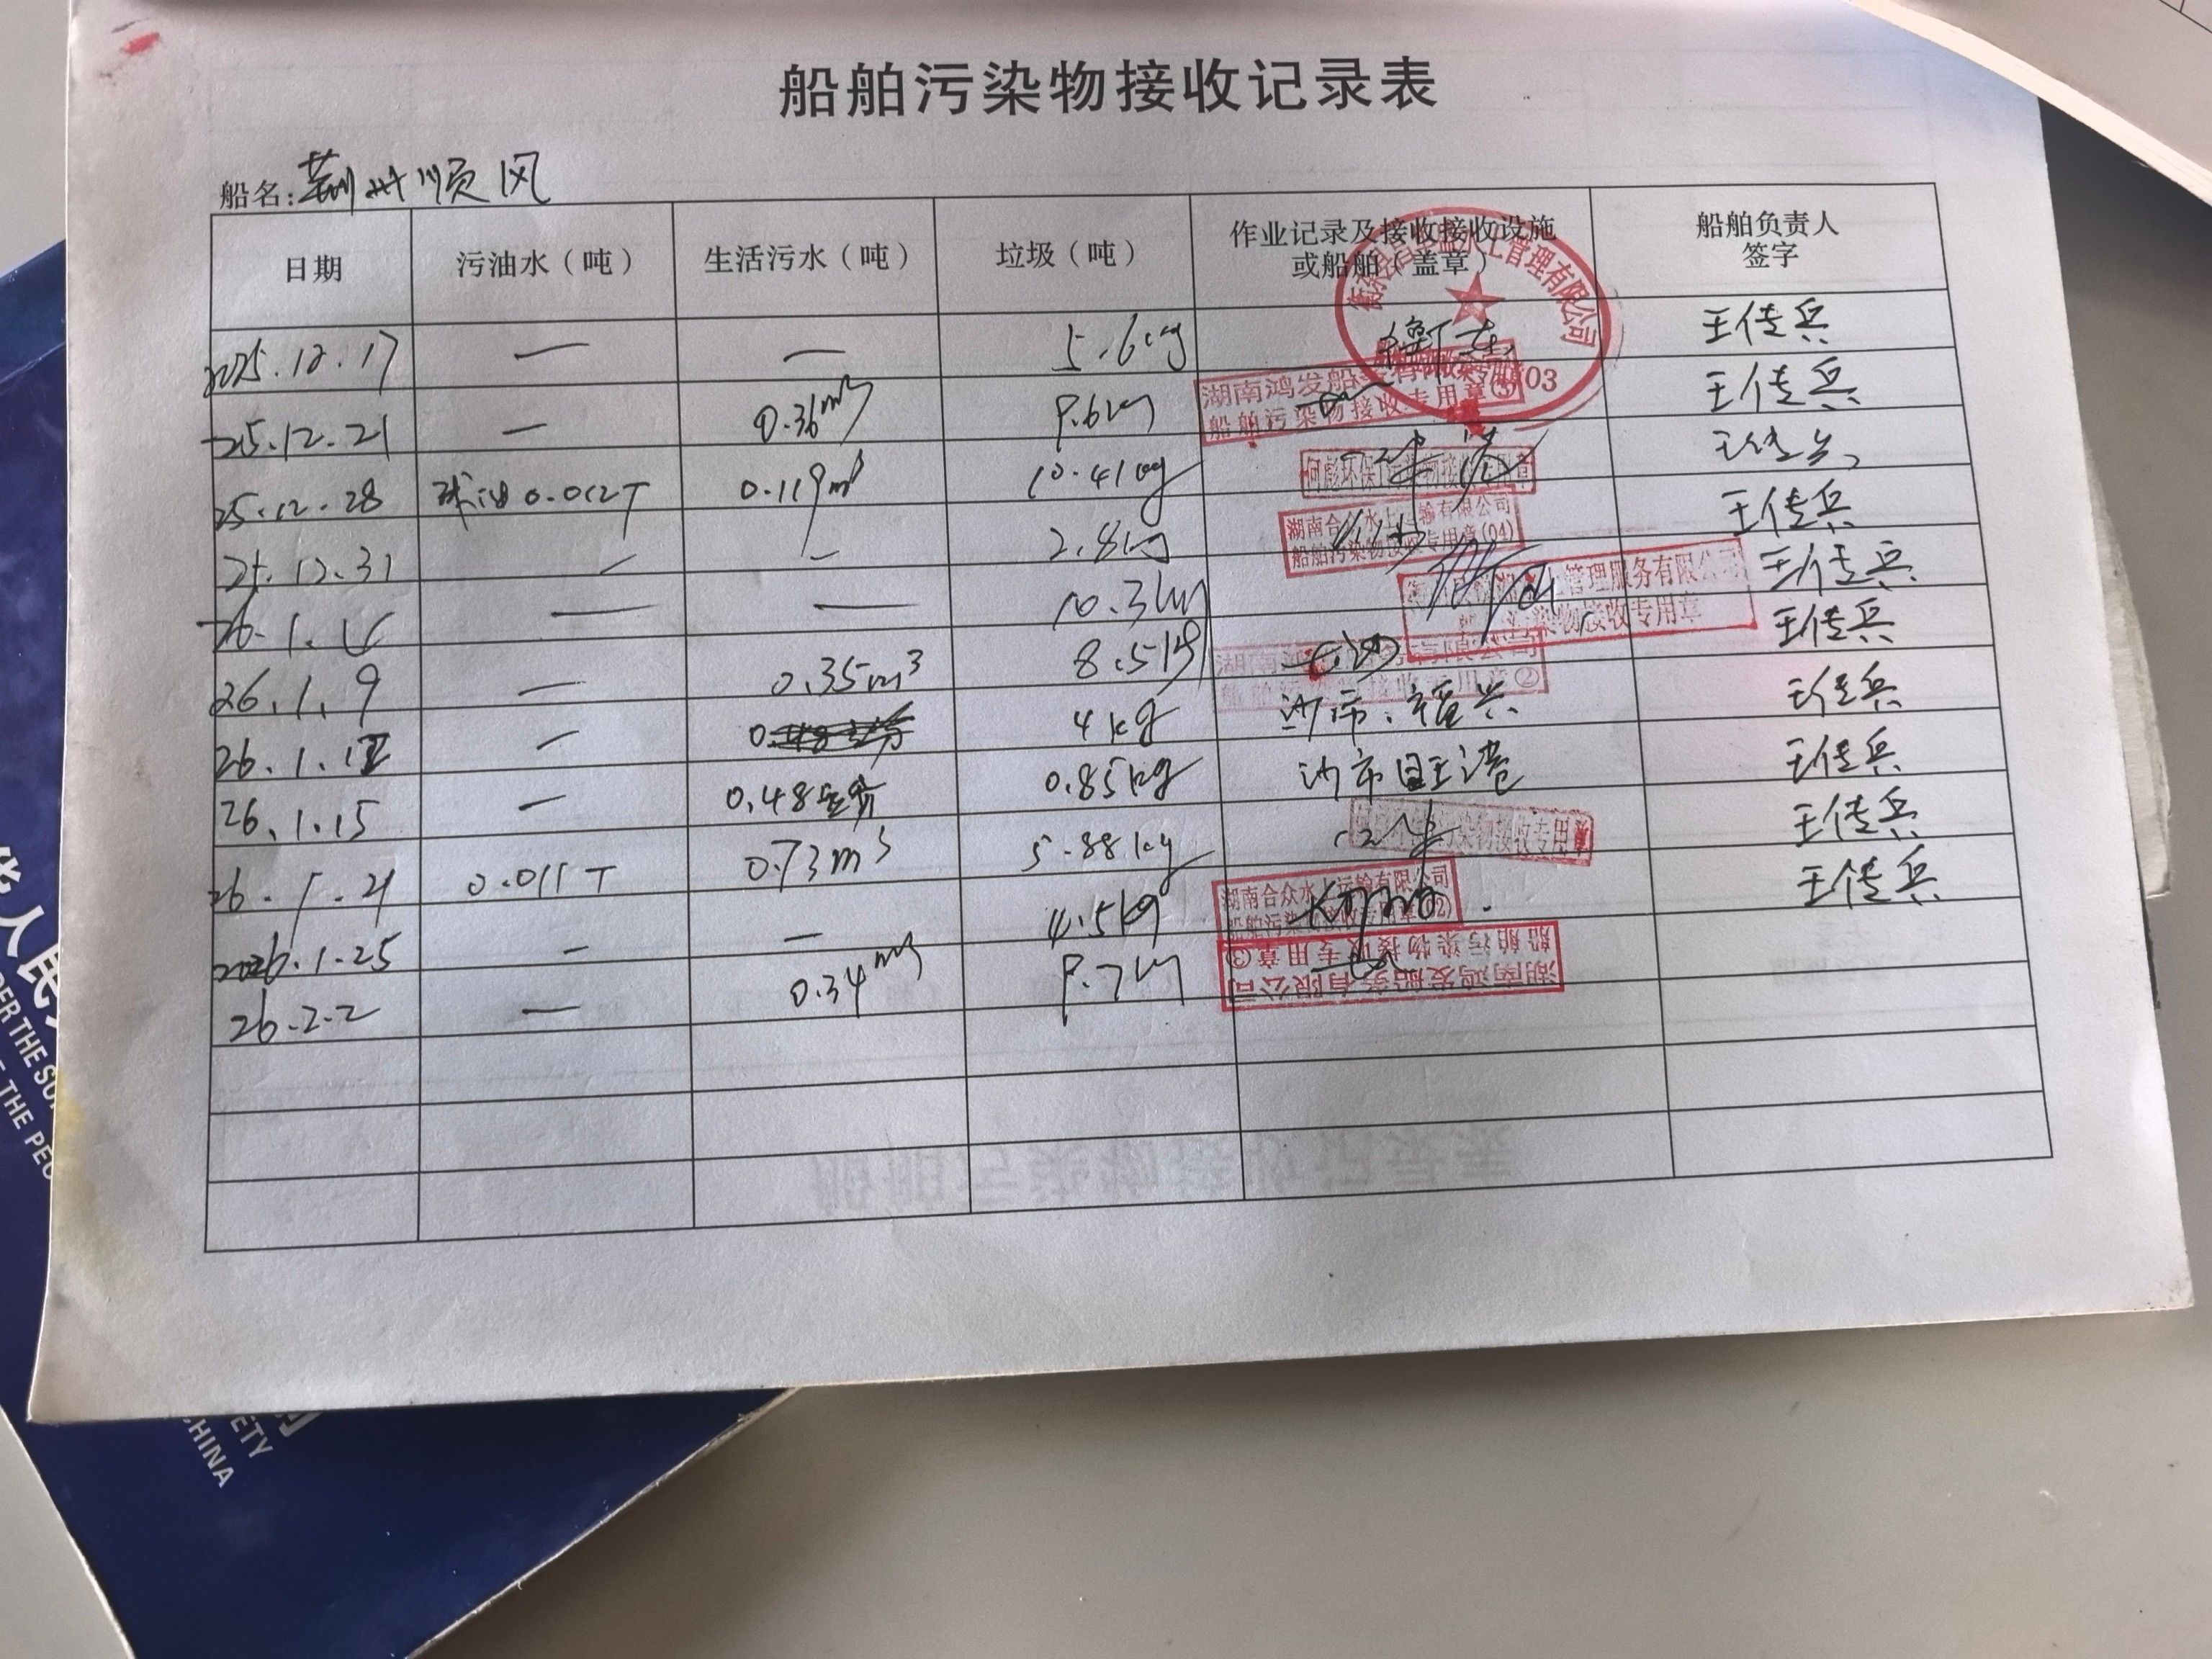 船舶污染物接收记录表
船名:荆州顺风
日期 污油水（吨） 生活污水（吨） 垃圾（吨） 作业记录及接收接收设施或船舶（盖章） 船舶负责人签字
2025.12.17 — — 5.6kg 王传兵
25.12.21 — 0.36m³ 9.6kg 湖南鸿发船 船舶污染物接收专用章③ 03 王传兵
25.12.28 0.012T 0.119m³ 10.41kg 何彪环保 污染物接收专用章 王传兵
25.12.31 — — 2.8kg 湖南合众水上运输有限公司 船舶污染物接收专用章(04) 王传兵
26.1. — — 10.3kg 管理服务有限公司 污染物接收专用章 王传兵
26.1.9 — 0.35m³ 8.5kg 湖南 有限公司 船舶污染物接收专用章② 王传兵
26.1.12 — 4kg 沙市 福兴 王传兵
26.1.15 — 0.48 0.85kg 沙市 港 王传兵
26.1.21 0.011T 0.73m³ 5.88kg 污染物接收专用章 王传兵
2026.1.25 — — 4.5kg 湖南合众水上运输有限公司 船舶污染物接收专用章(02) 王传兵
26.2.2 — 0.34m³ 9.7kg 湖南鸿发船务有限公司 船舶污染物接收专用章③
工管理有限公司
THE PEO
ETY
CHINA